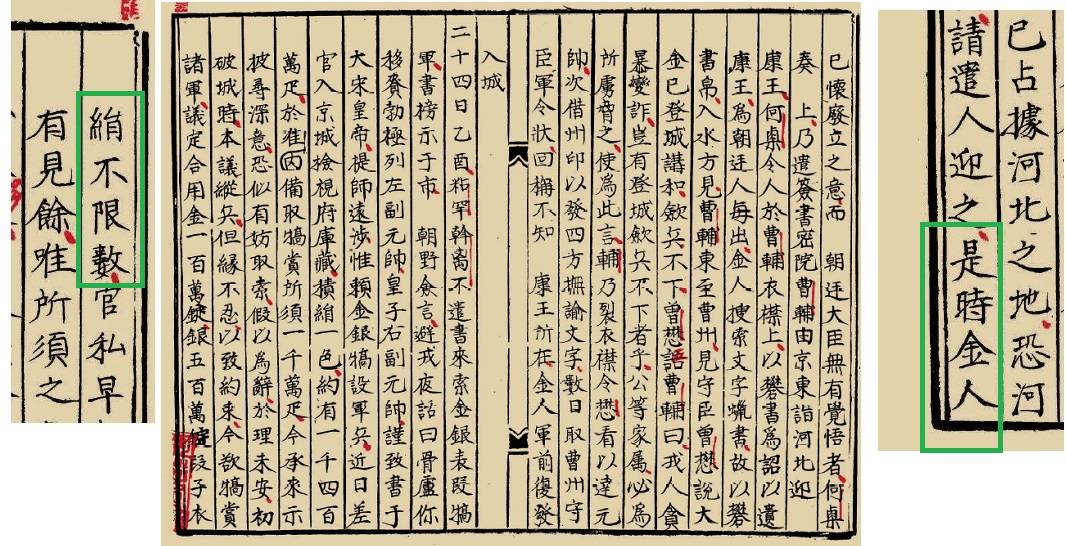 已占據河北之地恐河
請遣人迎之是時金人
已懷廢立之意而 朝廷大臣無有覺悟者何㮚
奏 上乃遣簽書密院曹輔由京東詣河北迎
康王何㮚令人於曹輔衣襟上以礬書爲詔以遺
康王爲朝廷人每出金人搜索文字蠟書故以礬
書帛入水方見曹輔東至曹州見守臣曾懋說大
金已登城講和斂兵不下曽懋語曹輔曰戎人貪
暴變詐豈有登城斂兵不下者乎公等家属必爲
所虜脅之使爲此言輔乃裂衣襟令懋看以達元
帥次借州印以發四方撫諭文字數日取曹州守
臣軍令狀回稱不知 康王所在金人軍前復發
入城
二十四日乙酉粘罕斡离不遣書來索金銀表段犒
軍書榜示于市 朝野僉言避戎夜話曰骨盧你
移賚勃極列左副元帥皇子右副元帥謹致書于
大宋皇帝提師遠涉惟賴金銀犒設軍兵近日差
官入京城檢視府庫藏積絹一色約有一千四百
萬疋於准内備取犒賞所須一千萬疋今承來示
披尋深意恐似有妨取索假以爲辭於理未安初
破城時本議縱兵但縁不忍以致約来今欲犒賞
諸軍議定合用金一百萬錠銀五百萬錠段子衣
絹不限數官私早
有見餘唯所須之